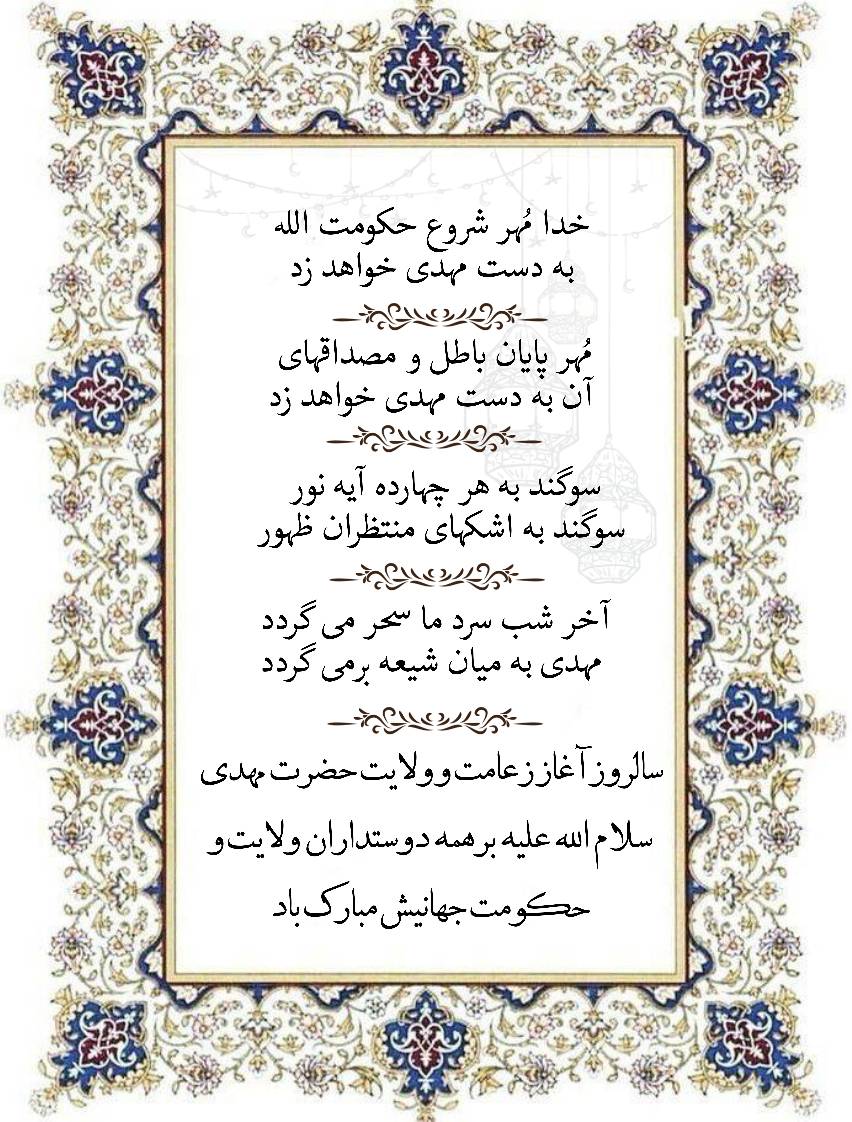 خدا مُهر شروع حکومت الله
به دست مهدی خواهد زد
مُهر پایان باطل و مصداقهای
آن به دست مهدی خواهد زد
سوگند به هر چهارده آیه نور
سوگند به اشکهای منتظران ظهور
آخر شب سرد ما سحر می گردد
مهدی به میان شیعه برمی گردد
سالروز آغاز زعامت و ولایت حضرت مهدی
سلام الله علیه بر همه دوستداران ولایت و
حکومت جهانیش مبارک باد